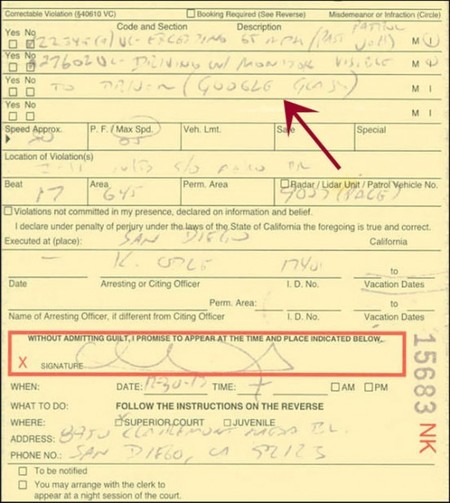 Correctable Violation (§40610 VC) Booking Required (See Reverse) Misdemeanor or Infraction (Circle)
Yes No Code and Section Description M I
22349(a) VC - 65 MPH
Yes No 27602 VC - DRIVING W/ MONITOR VISIBLE M I
Yes No TO DRIVER (GOOGLE GLASS) M I
Yes No M I
Speed Approx. P. F. / Max Spd. Veh. Lmt. Safe Special
65
Location of Violation(s)
Beat Area Perm. Area Radar / Lidar Unit / Patrol Vehicle No.
17 645 (PACE)
Violations not committed in my presence, declared on information and belief.
I declare under penalty of perjury under the laws of the State of California the foregoing is true and correct.
Executed at (place): SAN DIEGO California
K. ODLE to
Date Arresting or Citing Officer I. D. No. Vacation Dates
Perm Area: to
Name of Arresting Officer, if different from Citing Officer I. D. No. Vacation Dates
WITHOUT ADMITTING GUILT, I PROMISE TO APPEAR AT THE TIME AND PLACE INDICATED BELOW.
X SIGNATURE
WHEN: DATE: TIME: AM PM
WHAT TO DO: FOLLOW THE INSTRUCTIONS ON THE REVERSE
WHERE: SUPERIOR COURT JUVENILE
ADDRESS: 8950 CLAIREMONT MESA BL.
PHONE NO.: SAN DIEGO, CA 92123
To be notified
You may arrange with the clerk to
appear at a night session of the court.
15683 NK